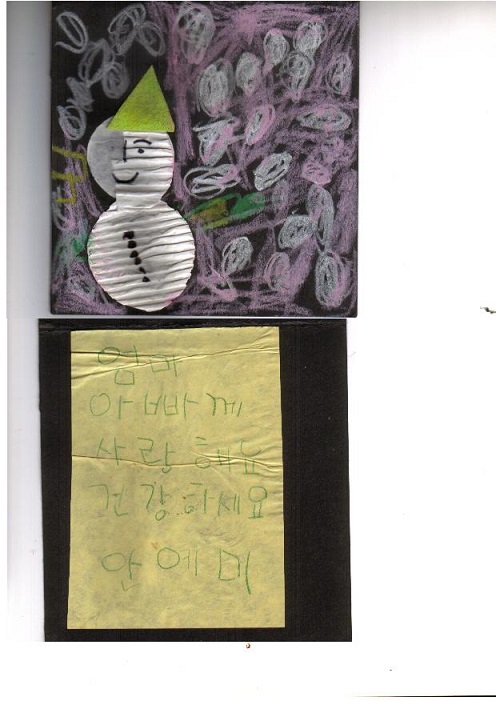 엄마
아빠께
사랑해요
건강하세요
안예미